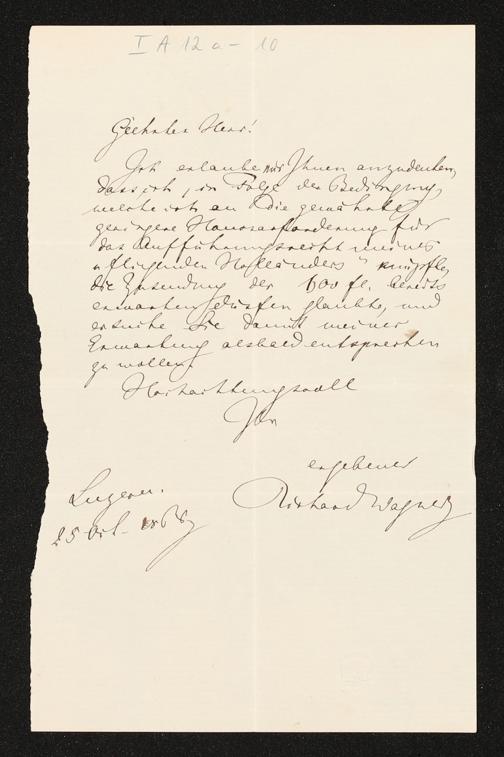 I A 12 a - 10
Geehrter Herr!
Ich erlaube mir Ihnen anzudeuten,
dass ich, in Folge der Bedingung,
welche ich an die gewährte
geringere Honorarforderung für
das Aufführungsrecht meines
"fliegenden Holländers" knüpfte,
die Zusendung der 600 fl. bereits
erwarten dürfen glaubte, und
ersuche Sie damit meiner
Erwartung alsbald entsprechen
zu wollen.
Hochachtungsvoll
Ihr
ergebener
Richard Wagner
Luzern.
25 Oct.